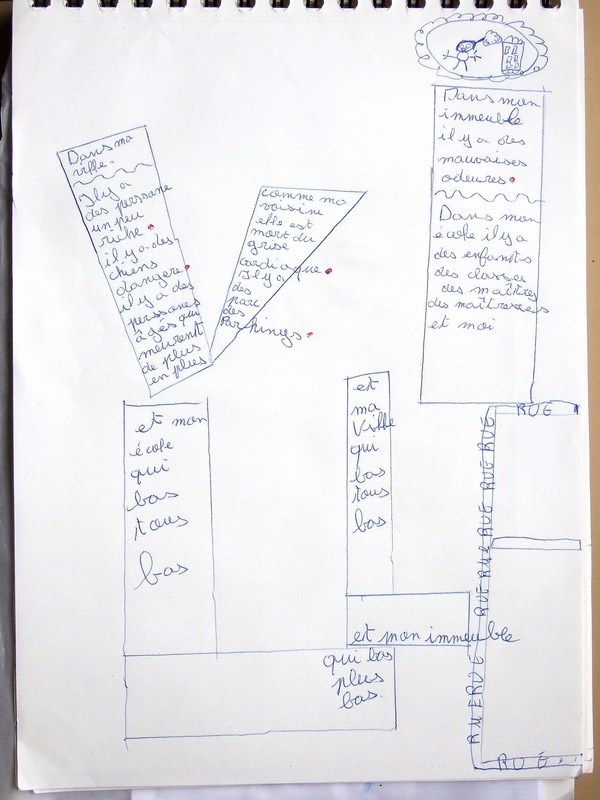 Dans ma
ville.
Il y a
des perssone
un peu
riche.
il y a des
chiens
dangere.
il y a des
perssones
âgés qui
meurent
de plus
en plus
comme ma
voisine
elle est
mort du
grise
cardiaque.
Il y a
des
parc
des
Parkings.
Dans mon
immeuble
il y a des
mauvaises
odeures.
Dans mon
école il y a
des enfants
des classes
des maîtres
des maîtresses
et moi
et mon
école
qui
bas
tous
bas
et
ma
Ville
qui
bas
tous
bas
et mon immeuble
qui bas
plus
bas.
RUE
RUE RUE RUE RUE RUE RUE RUE
RUE